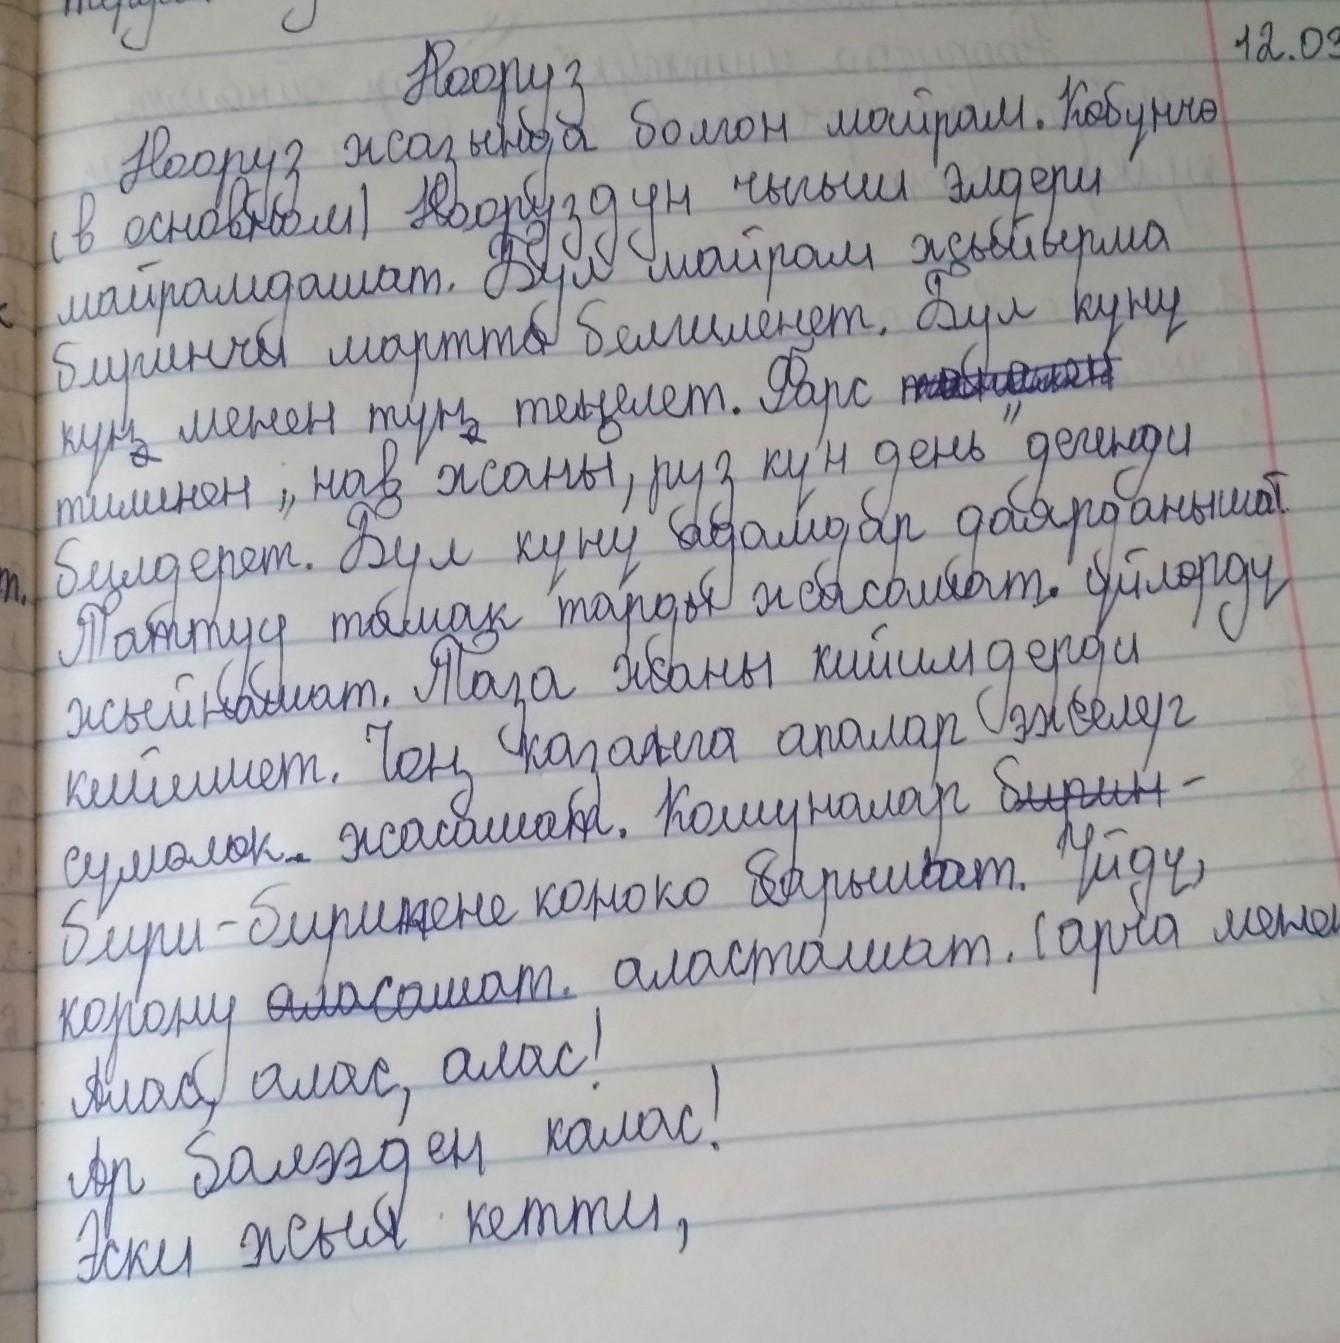 12.03
Нооруз
Нооруз жазында болгон майрам. Кобунчо
(в основном) Нооруздун чыгыш элдери
майрамдашат. Бул майрам жыйырма
биринчи мартта белгиленет. Бул куну
кун менен тун теңелет. Фарс
тилинен „нав жаны, руз кун день" дегенди
билдерет. Бул куну адамдар даярданышат.
Таттуу тамак тарды жасашат. Үйлорду
жыйнашат. Таза жаны кийимдерди
кийишет. Чоң казанга апалар эжелер
сумолок жасашат. Кошуналар бирин-
бири-бирине коноко барышат. Үйду,
корону аласашат. аласташат. (арча менен
Алас, алас, алас!
Ар балээден калас!
Эски жыл кетти,